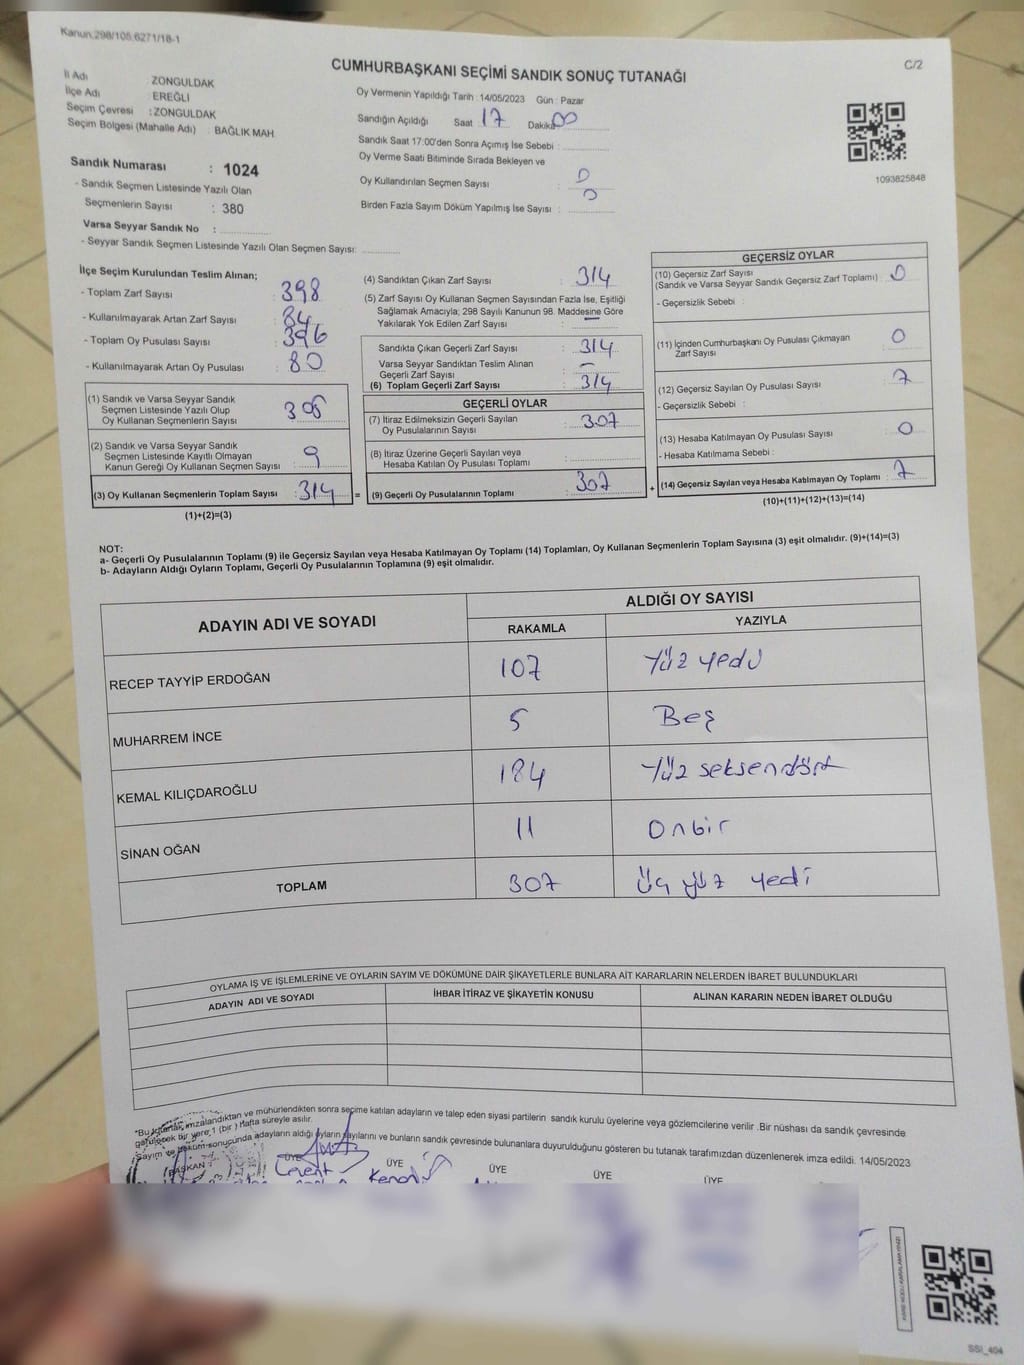 Kanun:298/105,6271/18-1
C/2
CUMHURBAŞKANI SEÇİMİ SANDIK SONUÇ TUTANAĞI
İl Adı : ZONGULDAK
İlçe Adı : EREĞLİ
Seçim Çevresi : ZONGULDAK
Seçim Bölgesi (Mahalle Adı) : BAĞLIK MAH.
Sandık Numarası : 1024
- Sandık Seçmen Listesinde Yazılı Olan
Seçmenlerin Sayısı : 380
Varsa Seyyar Sandık No :
- Seyyar Sandık Seçmen Listesinde Yazılı Olan Seçmen Sayısı:
Oy Vermenin Yapıldığı Tarih : 14/05/2023 Gün : Pazar
Sandığın Açıldığı Saat 17 Dakika 00
Sandık Saat 17:00'den Sonra Açımış İse Sebebi :
Oy Verme Saati Bitiminde Sırada Bekleyen ve
Oy Kullandırılan Seçmen Sayısı : 0
Birden Fazla Sayım Döküm Yapılmış İse Sayısı : 0
1093825848
İlçe Seçim Kurulundan Teslim Alınan;
- Toplam Zarf Sayısı : 398
- Kullanılmayarak Artan Zarf Sayısı : 84
- Toplam Oy Pusulası Sayısı : 396
- Kullanılmayarak Artan Oy Pusulası : 80
(1) Sandık ve Varsa Seyyar Sandık
Seçmen Listesinde Yazılı Olup
Oy Kullanan Seçmenlerin Sayısı :
(2) Sandık ve Varsa Seyyar Sandık
Seçmen Listesinde Kayıtlı Olmayan
Kanun Gereği Oy Kullanan Seçmen Sayısı : 9
(3) Oy Kullanan Seçmenlerin Toplam Sayısı : 314
(1)+(2)=(3)
(4) Sandıktan Çıkan Zarf Sayısı : 314
(5) Zarf Sayısı Oy Kullanan Seçmen Sayısından Fazla İse, Eşitliği
Sağlamak Amacıyla; 298 Sayılı Kanunun 98. Maddesine Göre
Yakılarak Yok Edilen Zarf Sayısı : —
Sandıkta Çıkan Geçerli Zarf Sayısı : 314
Varsa Seyyar Sandıktan Teslim Alınan
Geçerli Zarf Sayısı : —
(6) Toplam Geçerli Zarf Sayısı : 314
GEÇERLİ OYLAR
(7) İtiraz Edilmeksizin Geçerli Sayılan
Oy Pusulalarının Sayısı : 307
(8) İtiraz Üzerine Geçerli Sayılan veya
Hesaba Katılan Oy Pusulası Toplamı :
= (9) Geçerli Oy Pusulalarının Toplamı : 307
GEÇERSİZ OYLAR
(10) Geçersiz Zarf Sayısı
(Sandık ve Varsa Seyyar Sandık Geçersiz Zarf Toplamı) : 0
- Geçersizlik Sebebi :
(11) İçinden Cumhurbaşkanı Oy Pusulası Çıkmayan
Zarf Sayısı : 0
(12) Geçersiz Sayılan Oy Pusulası Sayısı : 7
- Geçersizlik Sebebi :
(13) Hesaba Katılmayan Oy Pusulası Sayısı : 0
- Hesaba Katılmama Sebebi :
+ (14) Geçersiz Sayılan veya Hesaba Katılmayan Oy Toplamı : 7
(10)+(11)+(12)+(13)=(14)
NOT:
a- Geçerli Oy Pusulalarının Toplamı (9) ile Geçersiz Sayılan veya Hesaba Katılmayan Oy Toplamı (14) Toplamları, Oy Kullanan Seçmenlerin Toplam Sayısına (3) eşit olmalıdır. (9)+(14)=(3)
b- Adayların Aldığı Oyların Toplamı, Geçerli Oy Pusulalarının Toplamına (9) eşit olmalıdır.
ADAYIN ADI VE SOYADI
ALDIĞI OY SAYISI
RAKAMLA YAZIYLA
RECEP TAYYİP ERDOĞAN 107 Yüz yedi
MUHARREM İNCE 5 Beş
KEMAL KILIÇDAROĞLU 184 Yüz seksendört
SİNAN OĞAN 11 Onbir
TOPLAM 307 Üç yüz yedi
OYLAMA İŞ VE İŞLEMLERİNE VE OYLARIN SAYIM VE DÖKÜMÜNE DAİR ŞİKAYETLERLE BUNLARA AİT KARARLARIN NELERDEN İBARET BULUNDUKLARI
ADAYIN ADI VE SOYADI İHBAR İTİRAZ VE ŞİKAYETİN KONUSU ALINAN KARARIN NEDEN İBARET OLDUĞU
*Bu tutanak, imzalandıktan ve mühürlendikten sonra seçime katılan adayların ve talep eden siyasi partilerin sandık kurulu üyelerine veya gözlemcilerine verilir .Bir nüshası da sandık çevresinde
görülebilecek bir yere 1 (bir ) hafta süreyle asılır.
Sayım ve döküm sonucunda adayların aldığı oyların sayılarını ve bunların sandık çevresinde bulunanlara duyurulduğunu gösteren bu tutanak tarafımızdan düzenlenerek imza edildi. 14/05/2023
BAŞKAN ÜYE ÜYE ÜYE ÜYE ÜYE
Levent
SSI_404